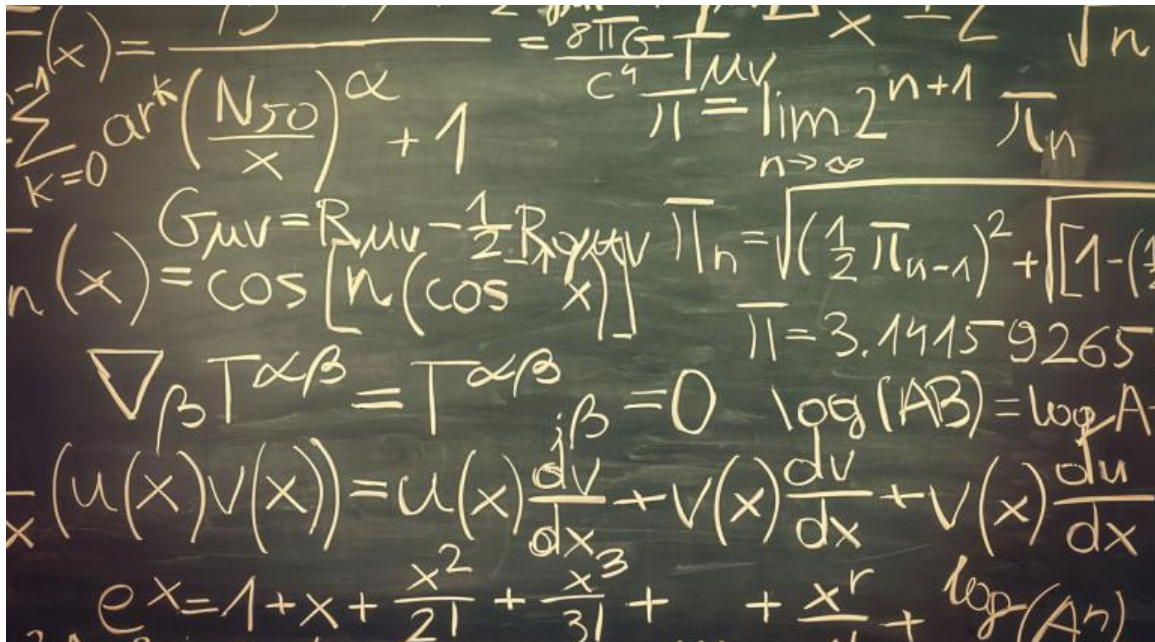 (x) =
= 8πG/c⁴ Tμν
x
√n
n-1 ∑ k=0 ar^k (N50/x)^α + 1
π = lim n→∞ 2^(n+1) π_n
Gμν = Rμν - 1/2 R
π_n = √((1/2 π_(n-1))² + √[1-(1/2
n(x) = cos[n(cos x)]
π = 3.14159265
∇_β T^αβ = T^αβ ;β = 0
log(AB) = log A
x (u(x)v(x)) = u(x) dv/dx + v(x) dv/dx + v(x) du/dx
e^x = 1 + x + x²/2! + x³/3! + + x^r +
log(An)